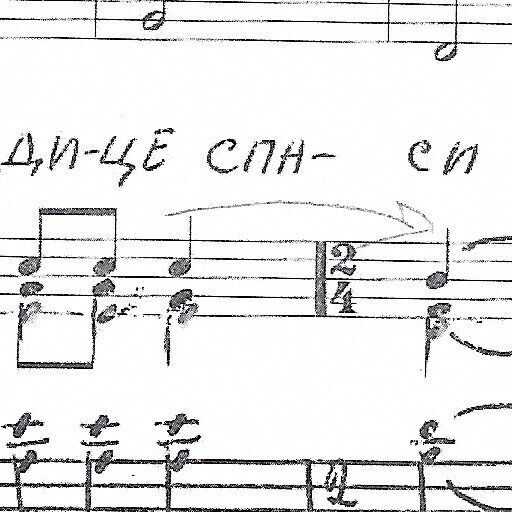 ДИ-ЦЕ СПА- СИ
2
4
2